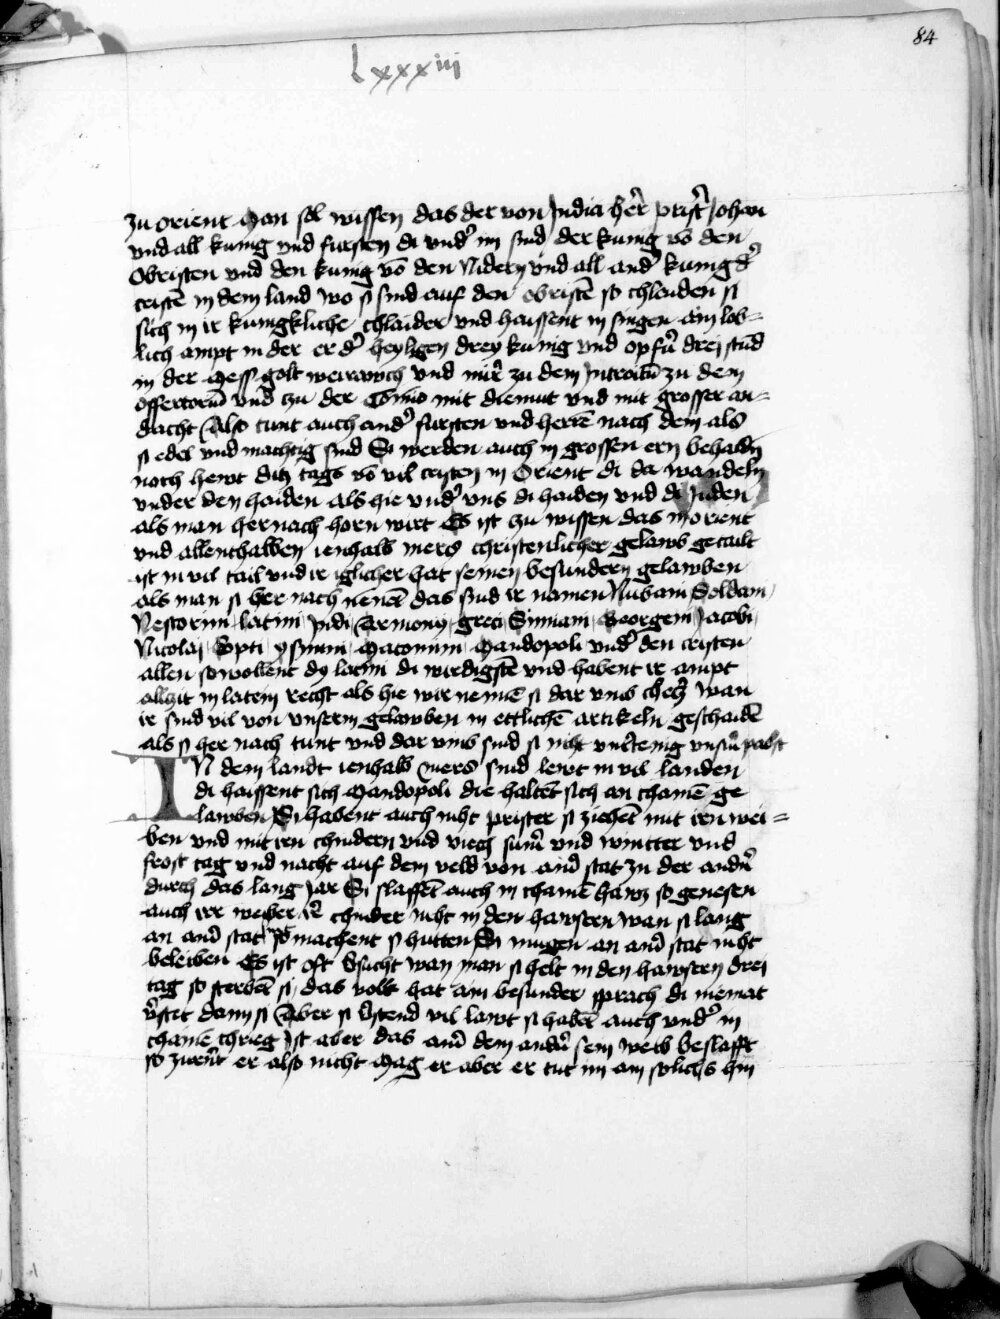 84
lxxxiiij
zu orient Man sol wissen das der von India her̄ prist̄ Johan
vnd all kunig vnd fursten di vnd' im sind der kunig võ den
Obristen vnd den kunig võ den Nidern vnd all and' kunig d'
cristē in dem land wo si sind auf den obristē so chlaiden si
sich in ir kunigkliche chlaider vnd haissent in singen ain lob=
lich ampt in der er d' heyligen drey kunig vnd opf'n drei stund
in der mess golt weirawch vnd mir̄ zu dem Introitū zu dem
offertoriū vnd zu der Cōmūo mit diemut vnd mit grosser an=
dacht Also tunt auch and' fursten vnd herrē nach dem als
si edel vnd machtig sind Si werden auch in grossen ern behaldn
noch hewt ditz tags võ vil cristen in Orient di da wandeln
vnder den haiden als hie vnd' vns di haiden vnd di Juden
als man her nach horn wirt Es ist zu wissen das in orient
vnd allenthalben ienhalb mers christenlicher gelawb getailt
ist in vil tail vnd ir iglicher hat seinen besundern gelawben
als man si her nach nēnēt das sind ir namen Nubiani Soldani
Nestorini latini Indi Armony greci Siriani Georgeni Jacobi
Nicolai Copti ysinini Maronini Mandopoli vnd' den cristen
allen so wollent dy latini di wirdigstē vnd habent ir ampt
allzit in latein recht als hie wir nennē si dar vmb wan
ir sind vil von vnserm gelawben in ettlichē artikeln geschaidē
als si her nach tunt vnd dar vmb sind si niht vnt'tenig vns'm pabst
IN dem landt ienhalb mers sind lewt in vil landen
di haissent sich Mandopoli die haltēt sich an chainē ge
lawben Si habent auch niht prister si ziehēt mit iren wei=
ben vnd mit iren chindern vnd viech sum̄ vnd wintter vnd
frost tag vnd nacht auf dem veld von ain' stat zu der and'n
durch das lang Jar Si slaffēt auch in chainē haws so genesen
auch irr weiber ir' chinder niht in den hawsern wan si lang
an ain' stat so machent si hutten Si mugen an ain' stat niht
beleiben Es ist oft v'sucht wan man si helt in den hawsern drei
tag so sterbēt si das volk hat ain besunder sprach di niemat
v'stet dann si Aber si v'stend vil lawt si habēt auch vnd' in
chainē chrieg Ist aber das ain' dem and'n sein weib beslafft
so zurnt er also nicht Mag er aber er tut im ain solichs hin